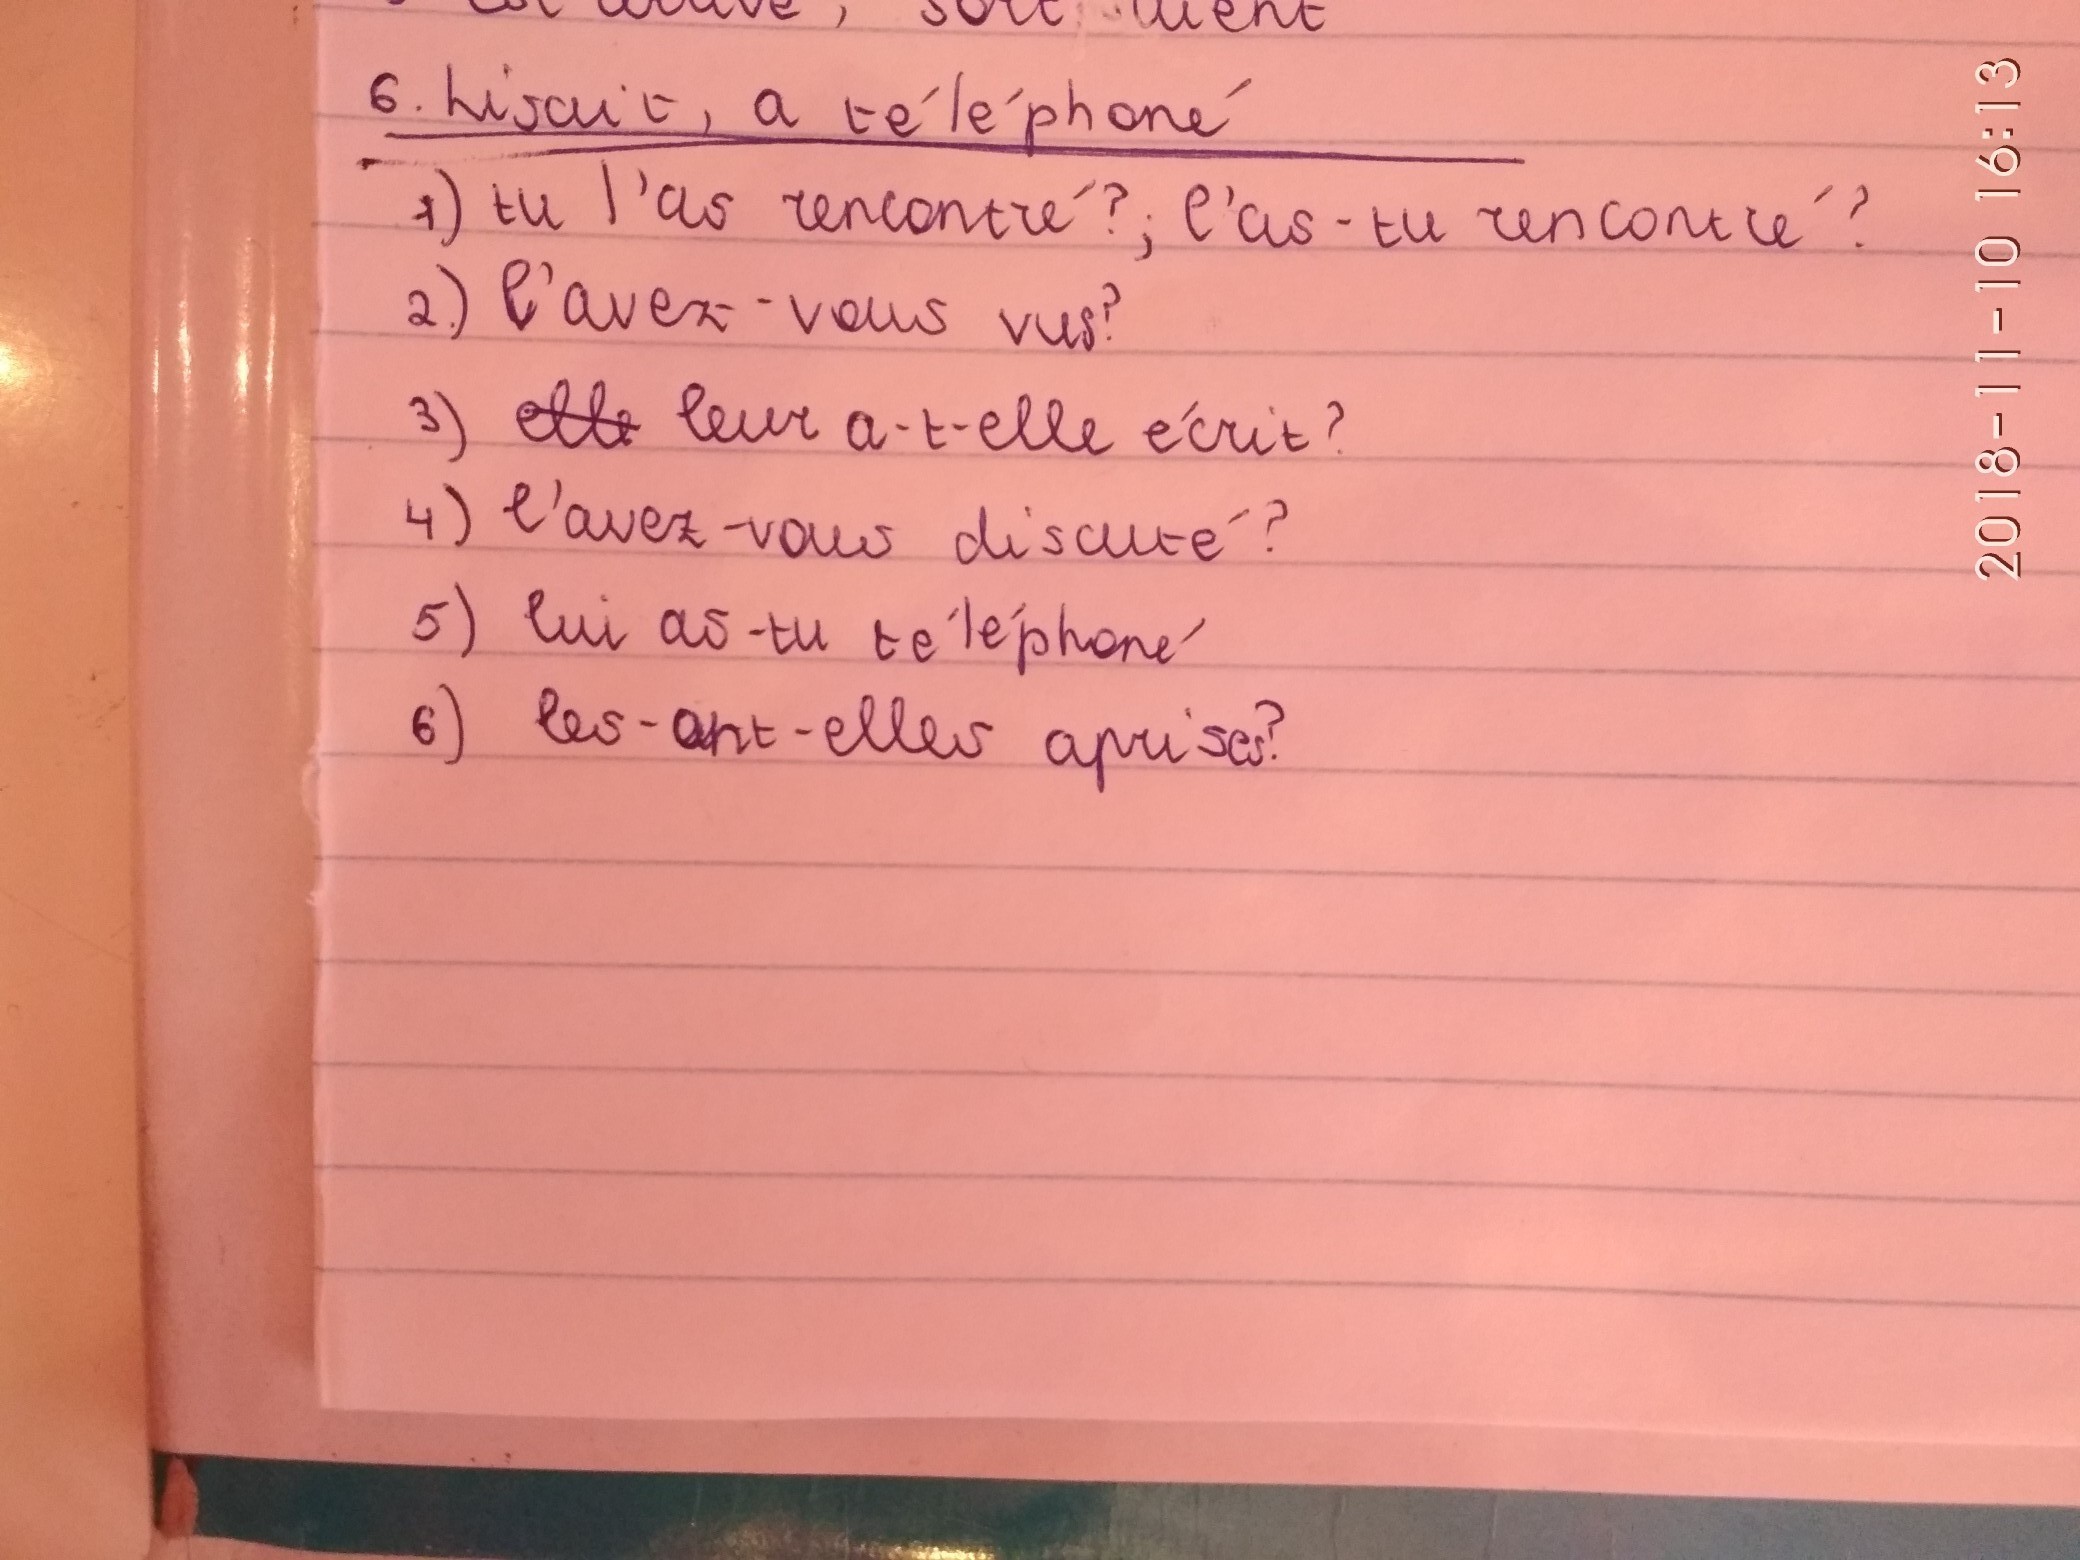 6. Lisait, a téléphoné
1) tu l'as rencontré?; l'as-tu rencontré?
2) l'avez-vous vus?
3) elle leur a-t-elle écrit?
4) l'avez-vous discuté?
5) lui as-tu téléphoné
6) les-ont-elles aprises?
2018-11-10 16:13